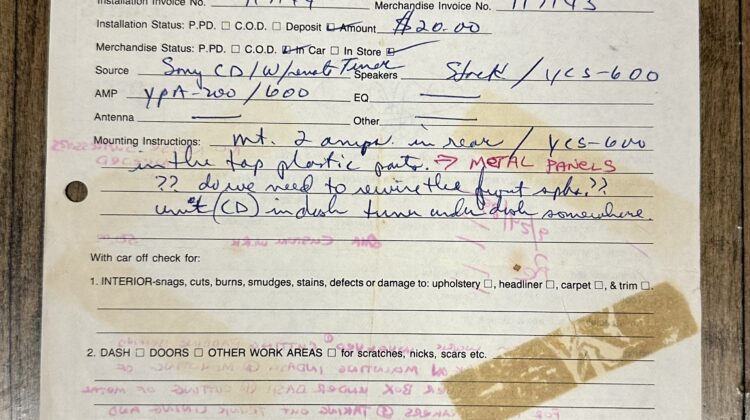 Installation Invoice No.
Merchandise Invoice No.
Installation Status: P.PD. ☐ C.O.D. ☐ Deposit ☑ Amount $20.00
Merchandise Status: P.PD. ☐ C.O.D. ☑ In Car ☐ In Store ☑
Source Sony CD/W/ Tuner Speakers Stock / YCS-600
AMP YPA-200 / 600 EQ —
Antenna — Other —
Mounting Instructions: mt. 2 amps. in rear / YCS-600
in the top plastic parts. → METAL PANELS
?? do we need to rewire the front spks.??
unit (CD) in dash tuner under dash somewhere.
CUSTOM WORK
With car off check for:
1. INTERIOR-snags, cuts, burns, smudges, stains, defects or damage to: upholstery ☐, headliner ☐, carpet ☐, & trim ☐.
2. DASH ☐ DOORS ☐ OTHER WORK AREAS ☐ for scratches, nicks, scars etc.